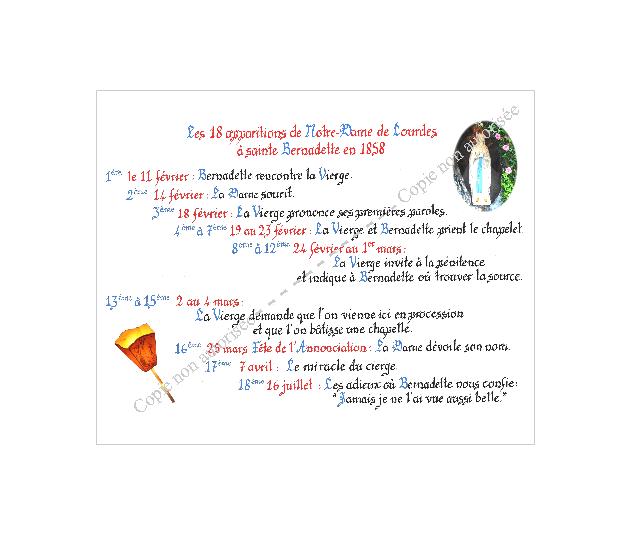 Les 18 apparitions de Notre-Dame de Lourdes
à sainte Bernadette en 1858
1ère le 11 février : Bernadette rencontre la Vierge.
2ème 14 février : La Dame sourit.
3ème 18 février : La Vierge prononce ses premières paroles.
4ème à 7ème 19 au 23 février : La Vierge et Bernadette prient le chapelet
8ème à 12ème 24 février au 1er mars :
La Vierge invite à la pénitence
et indique à Bernadette où trouver la source.
13ème à 15ème 2 au 4 mars :
La Vierge demande que l'on vienne ici en procession
et que l'on bâtisse une chapelle.
16ème 25 mars Fête de l'Annonciation : La Dame dévoile son nom.
17ème 7 avril : Le miracle du cierge
18ème 16 juillet : Les adieux où Bernadette nous confie:
"Jamais je ne l'ai vue aussi belle."
Copie non autorisée - - - - - - - - - - Copie non autorisée